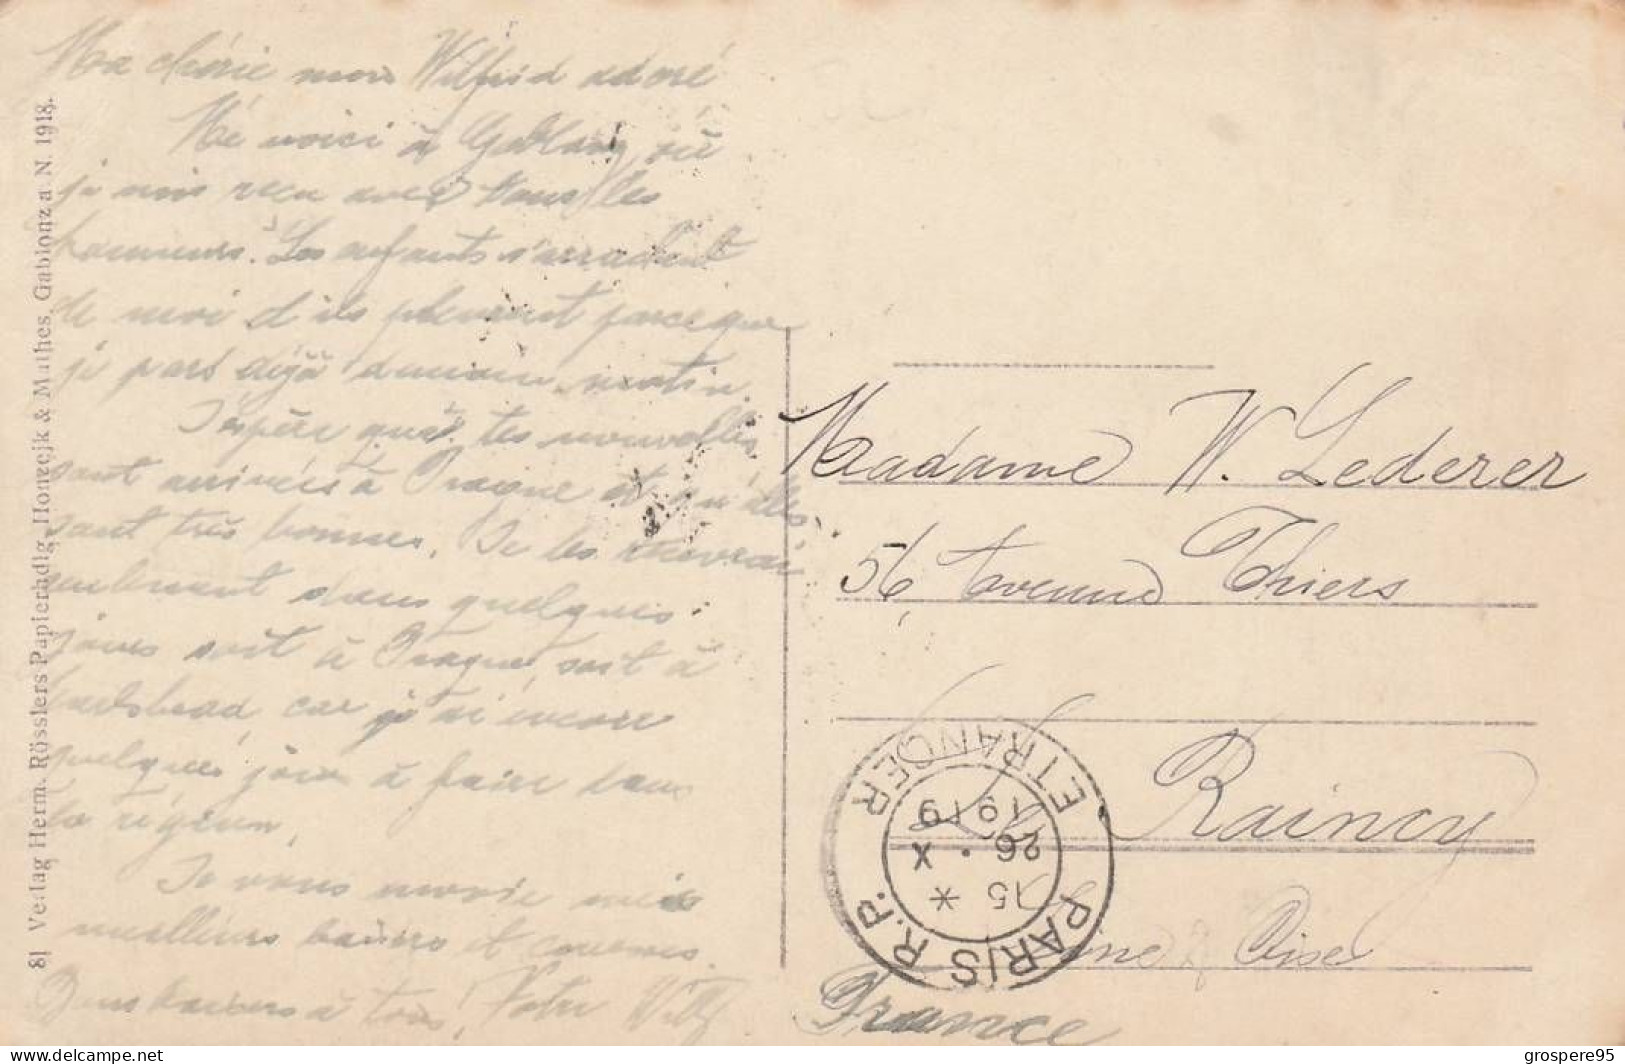 Ma chérie mon Wilfrid adoré
Me voici à Gablonz, où
je suis reçu avec tous les
honneurs. Les enfants s'arrachent
de moi et ils pleurent parce que
je pars déjà demain matin.
J'espère que tes nouvelles
sont arrivées à Prague et qu'elles
sont très bonnes. Je les recevrai
seulement dans quelques
jours soit à Prague, soit à
Karlsbad, car j'ai encore
quelques jours à faire dans
la région.
Je vous envoie mes
meilleurs baisers et caresses.
Bons baisers à tous, Votre Willy
81 Verlag Herm. Rösslers Papierhdlg. Honzejk & Mathes, Gablonz a. N. 1918.
Madame W. Lederer
56, Avenue Thiers
Le Raincy
Seine & Oise
France
PARIS R.P.
ETRANGER
15 *
26 . X
1919
www.delcampe.net
grospere95